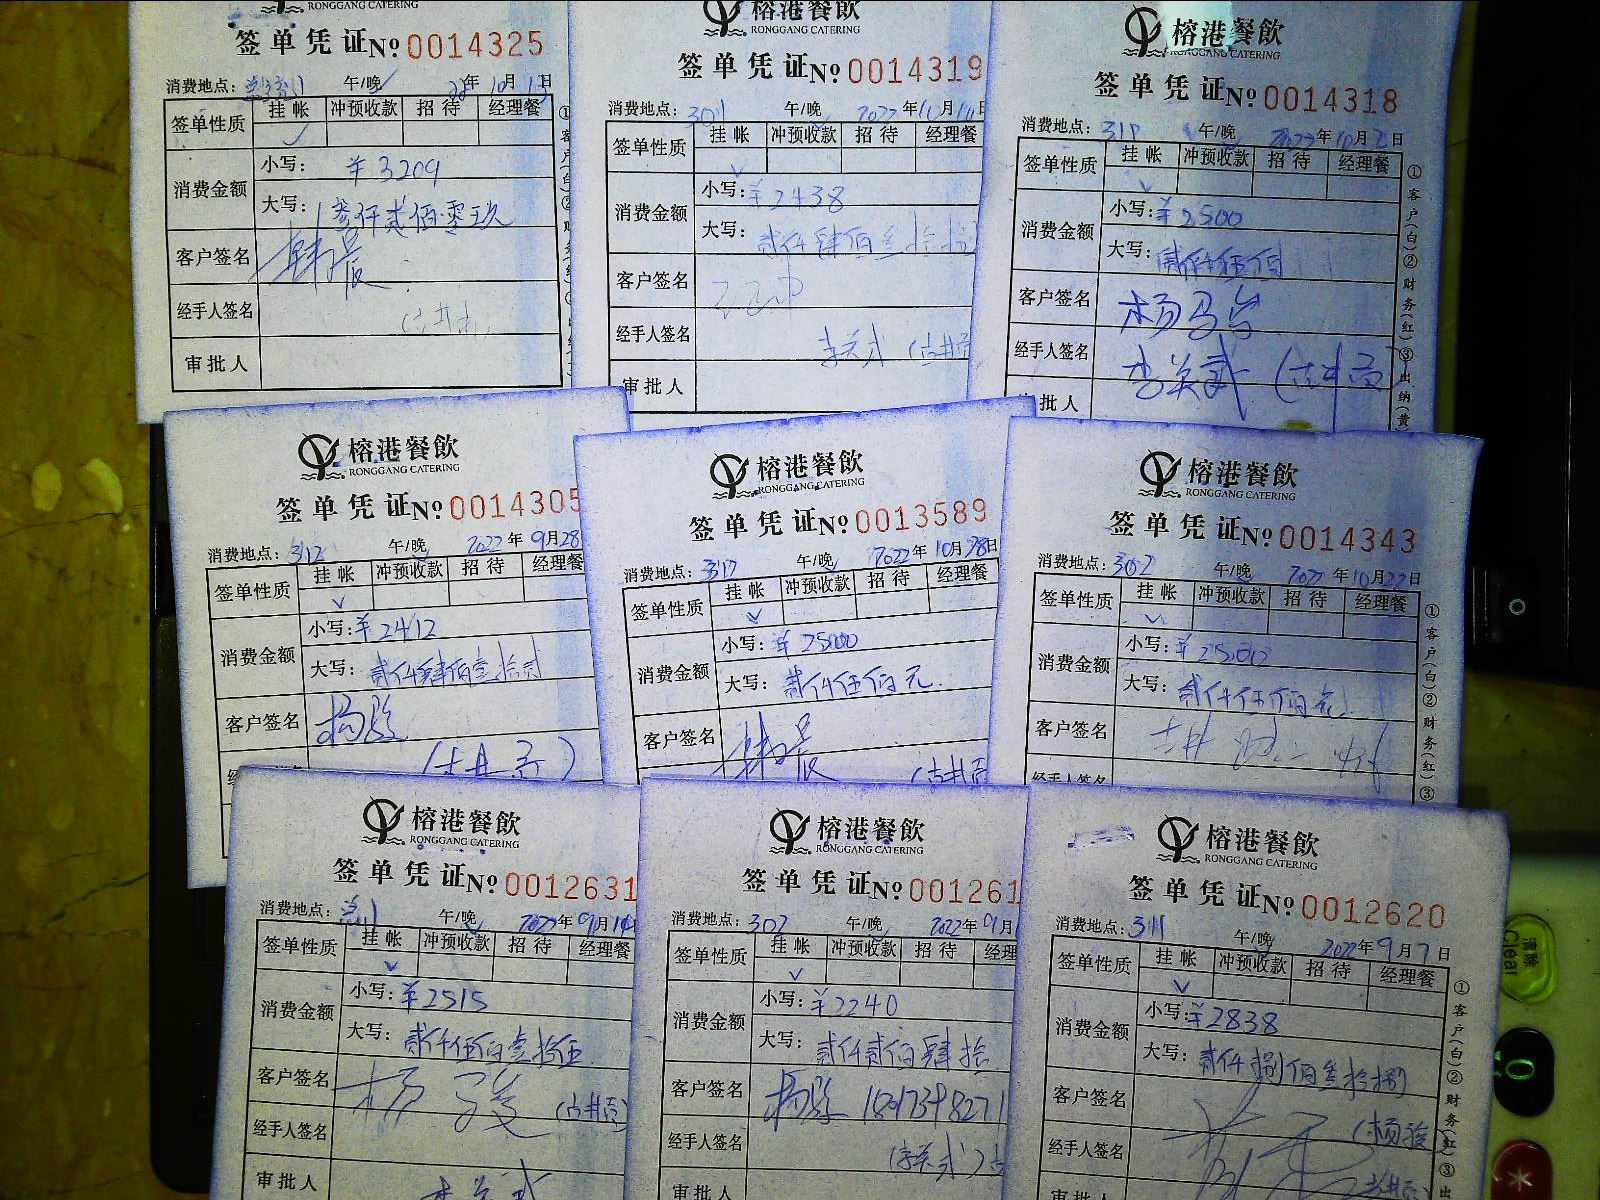 RONGGANG CATERING
签单凭证№ 0014325
消费地点： 午/晚 22年10月1日
签单性质 挂帐 冲预收款 招待 经理餐
消费金额 小写： ¥3209
大写： 叁仟贰佰零玖
客户签名 韩晨
经手人签名
审批人
榕港餐飲
RONGGANG CATERING
签单凭证№ 0014319
消费地点： 301 午/晚 2022年10月10日
签单性质 挂帐 冲预收款 招待 经理餐
消费金额 小写：¥2438
大写： 贰仟肆佰叁拾捌
客户签名
经手人签名 李关武（古井贡
审批人
榕港餐飲
RONGGANG CATERING
签单凭证№ 0014318
消费地点： 311 午/晚 2022年10月2日
签单性质 挂帐 冲预收款 招待 经理餐
消费金额 小写：¥2500
大写： 贰仟伍佰
客户签名 杨
经手人签名 李关武（古井贡
审批人
①客户(白)②财务(红)③出纳(黄
榕港餐飲
RONGGANG CATERING
签单凭证№ 0014305
消费地点： 312 午/晚 2022年9月28
签单性质 挂帐 冲预收款 招待 经理餐
消费金额 小写：¥2412
大写： 贰仟肆佰壹拾贰
客户签名 杨骏
（古井贡）
榕港餐飲
RONGGANG CATERING
签单凭证№ 0013589
消费地点： 317 午/晚 2022年10月28日
签单性质 挂帐 冲预收款 招待 经理餐
消费金额 小写： ¥2500
大写： 贰仟伍佰元
客户签名 韩晨
（古井贡
榕港餐飲
RONGGANG CATERING
签单凭证№ 0014343
消费地点： 302 午/晚 2022年10月22日
签单性质 挂帐 冲预收款 招待 经理餐
消费金额 小写： ¥2500
大写： 贰仟伍佰元
客户签名 古井
经手人签名
①客户(白)②财务(红)③
榕港餐飲
RONGGANG CATERING
签单凭证№ 0012631
消费地点： 午/晚 2022年9月14
签单性质 挂帐 冲预收款 招待 经理餐
消费金额 小写：¥2515
大写： 贰仟伍佰壹拾伍
客户签名 杨（古井贡）
经手人签名
审批人 李关武
榕港餐飲
RONGGANG CATERING
签单凭证№ 001261
消费地点： 302 午/晚 2022年9月
签单性质 挂帐 冲预收款 招待 经理
消费金额 小写：¥2240
大写： 贰仟贰佰肆拾
客户签名 杨骏 18017398271
经手人签名 （李关武）古
审批人
榕港餐飲
RONGGANG CATERING
签单凭证№ 0012620
消费地点： 311 午/晚 2022年9月7日
签单性质 挂帐 冲预收款 招待 经理餐
消费金额 小写：¥2838
大写： 贰仟捌佰叁拾捌
客户签名 （杨骏
经手人签名
审批人
①客户(白)②财务(红)③出
清除
Clear
0
*